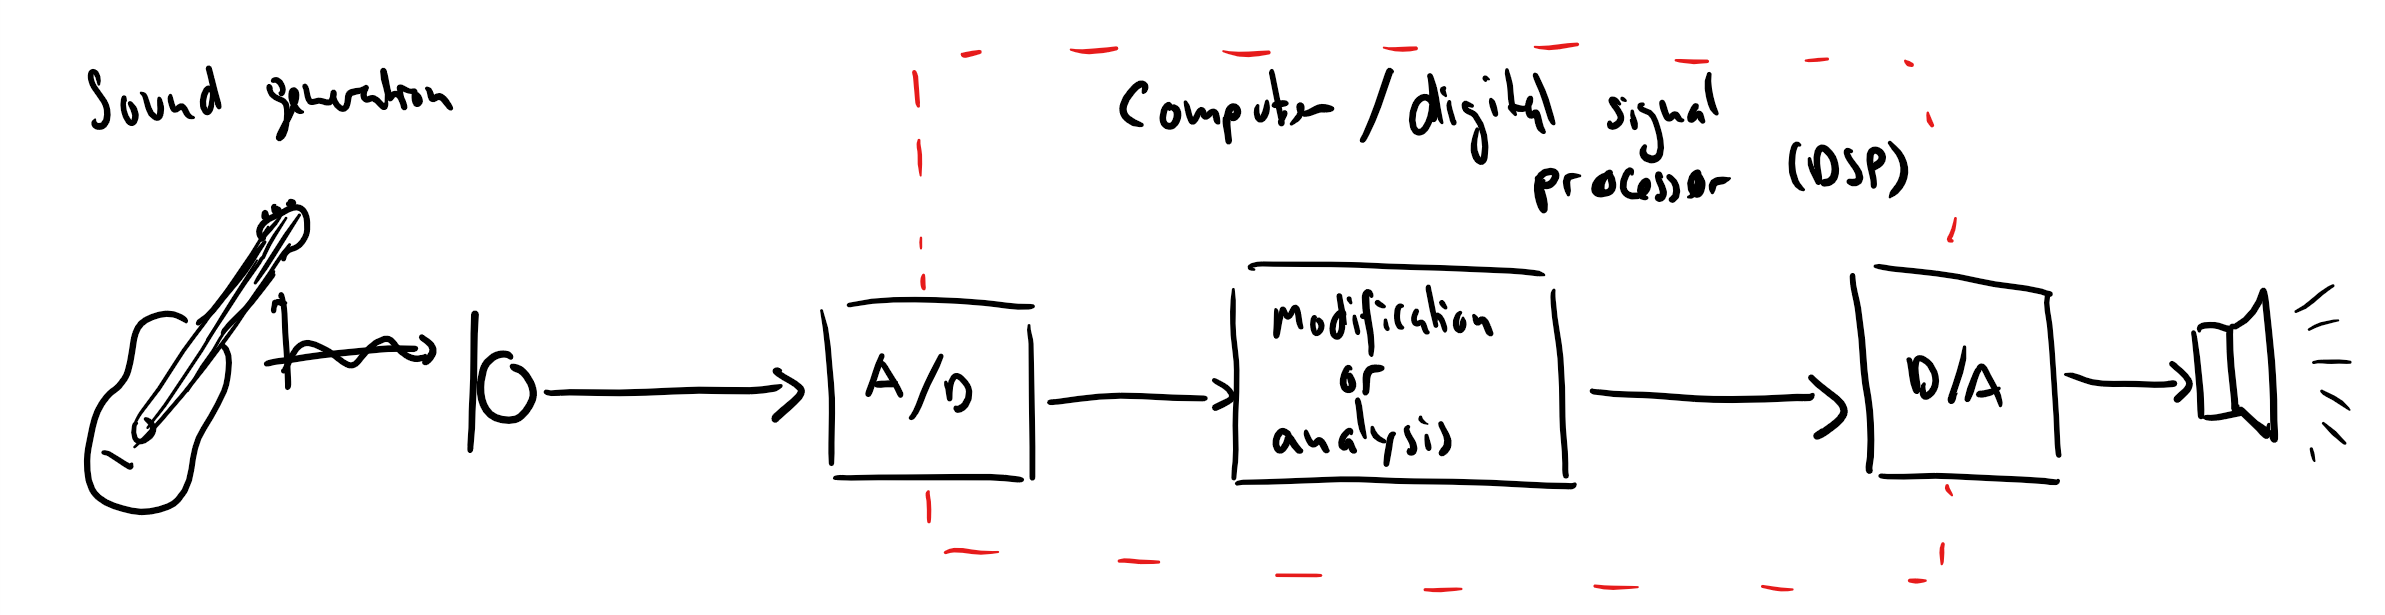 Sound generation
Computer / digital signal
processor (DSP)
A/D
modification
or
analysis
D/A